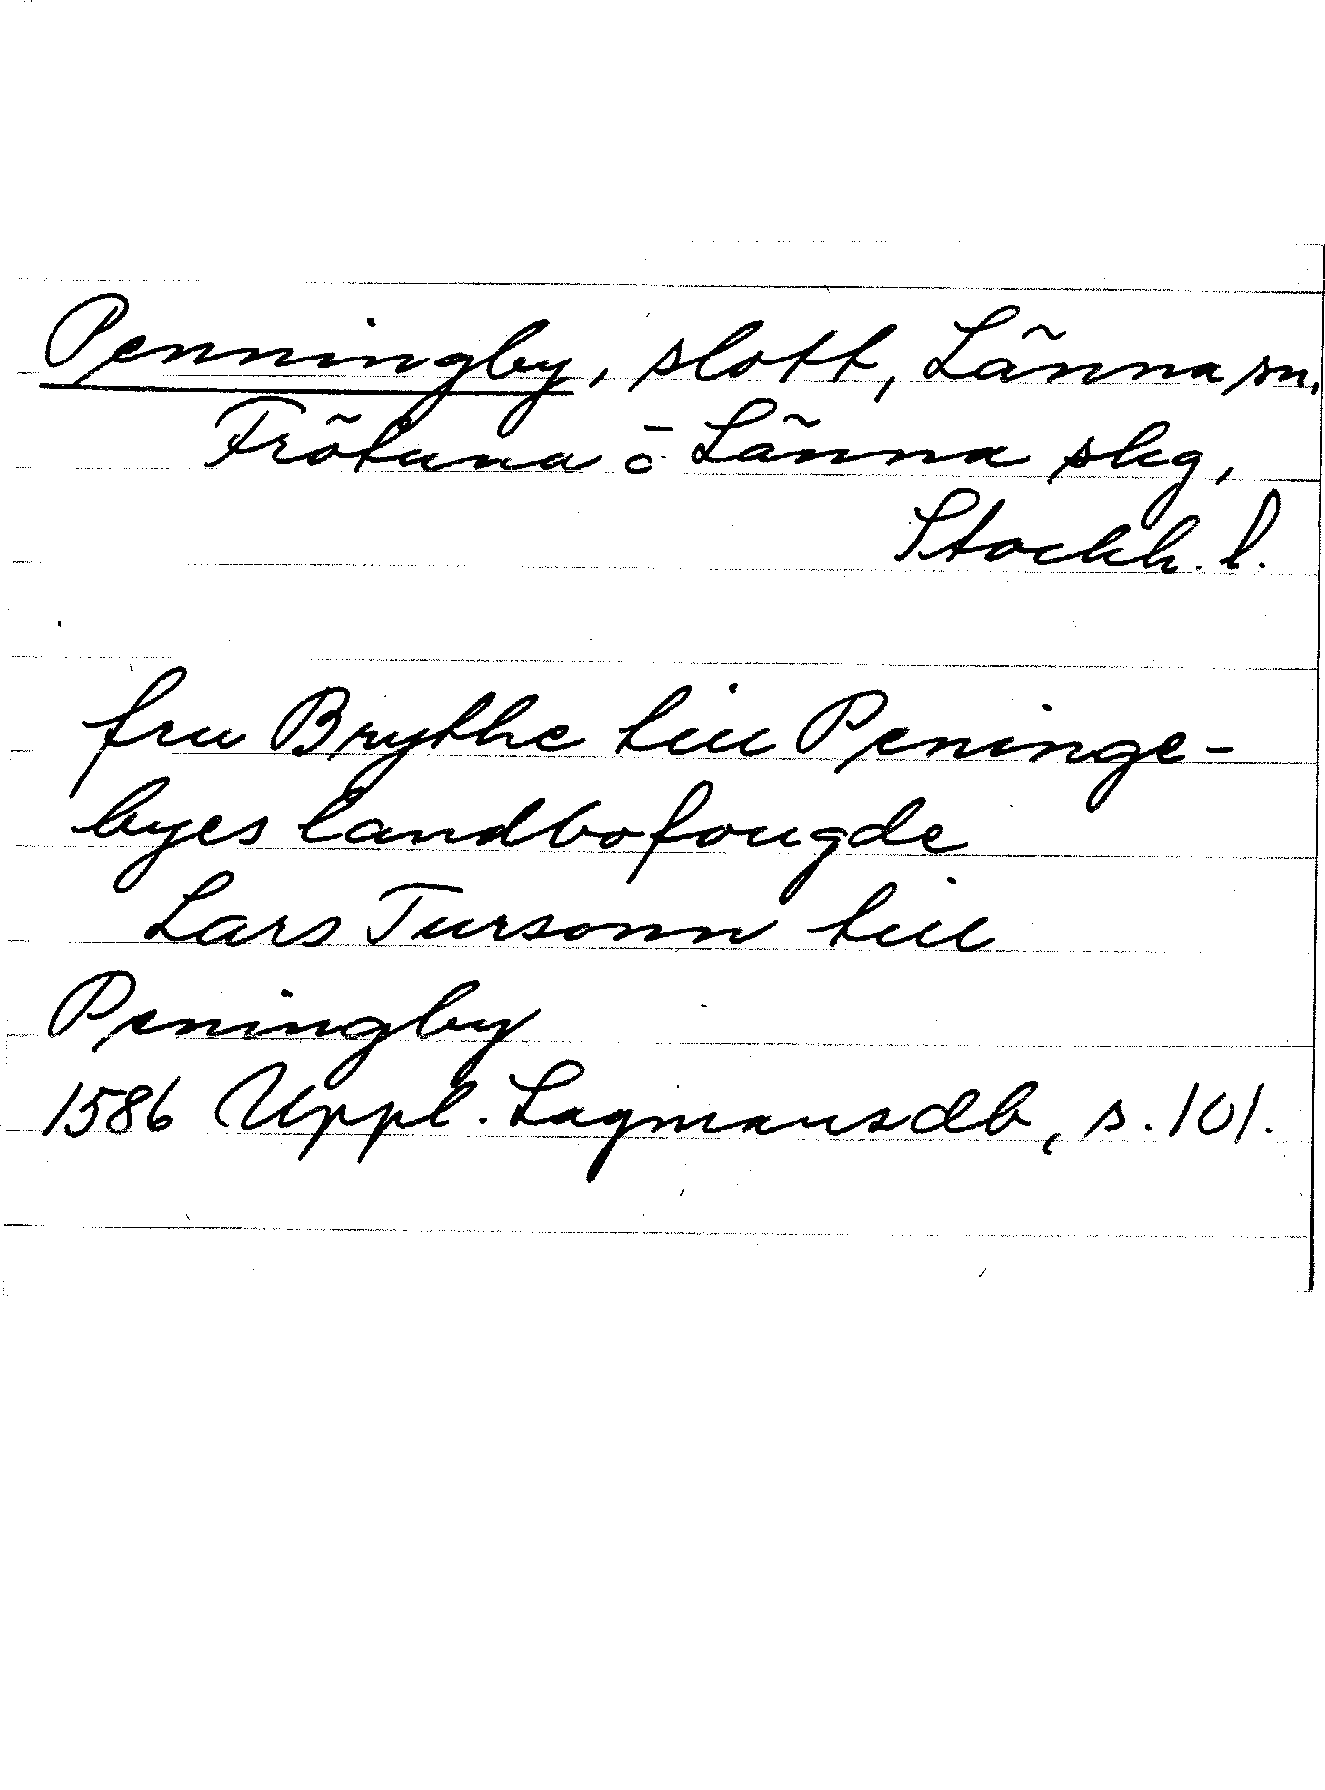 Penningby, slott, Länna sn,
Frötuna o Länna skg,
Stockh. l.
fru Brythe till Peninge-
byes landbofougde
Lars Tursonn till
Peningby
1586 Uppl. Lagmansdb, s. 101.